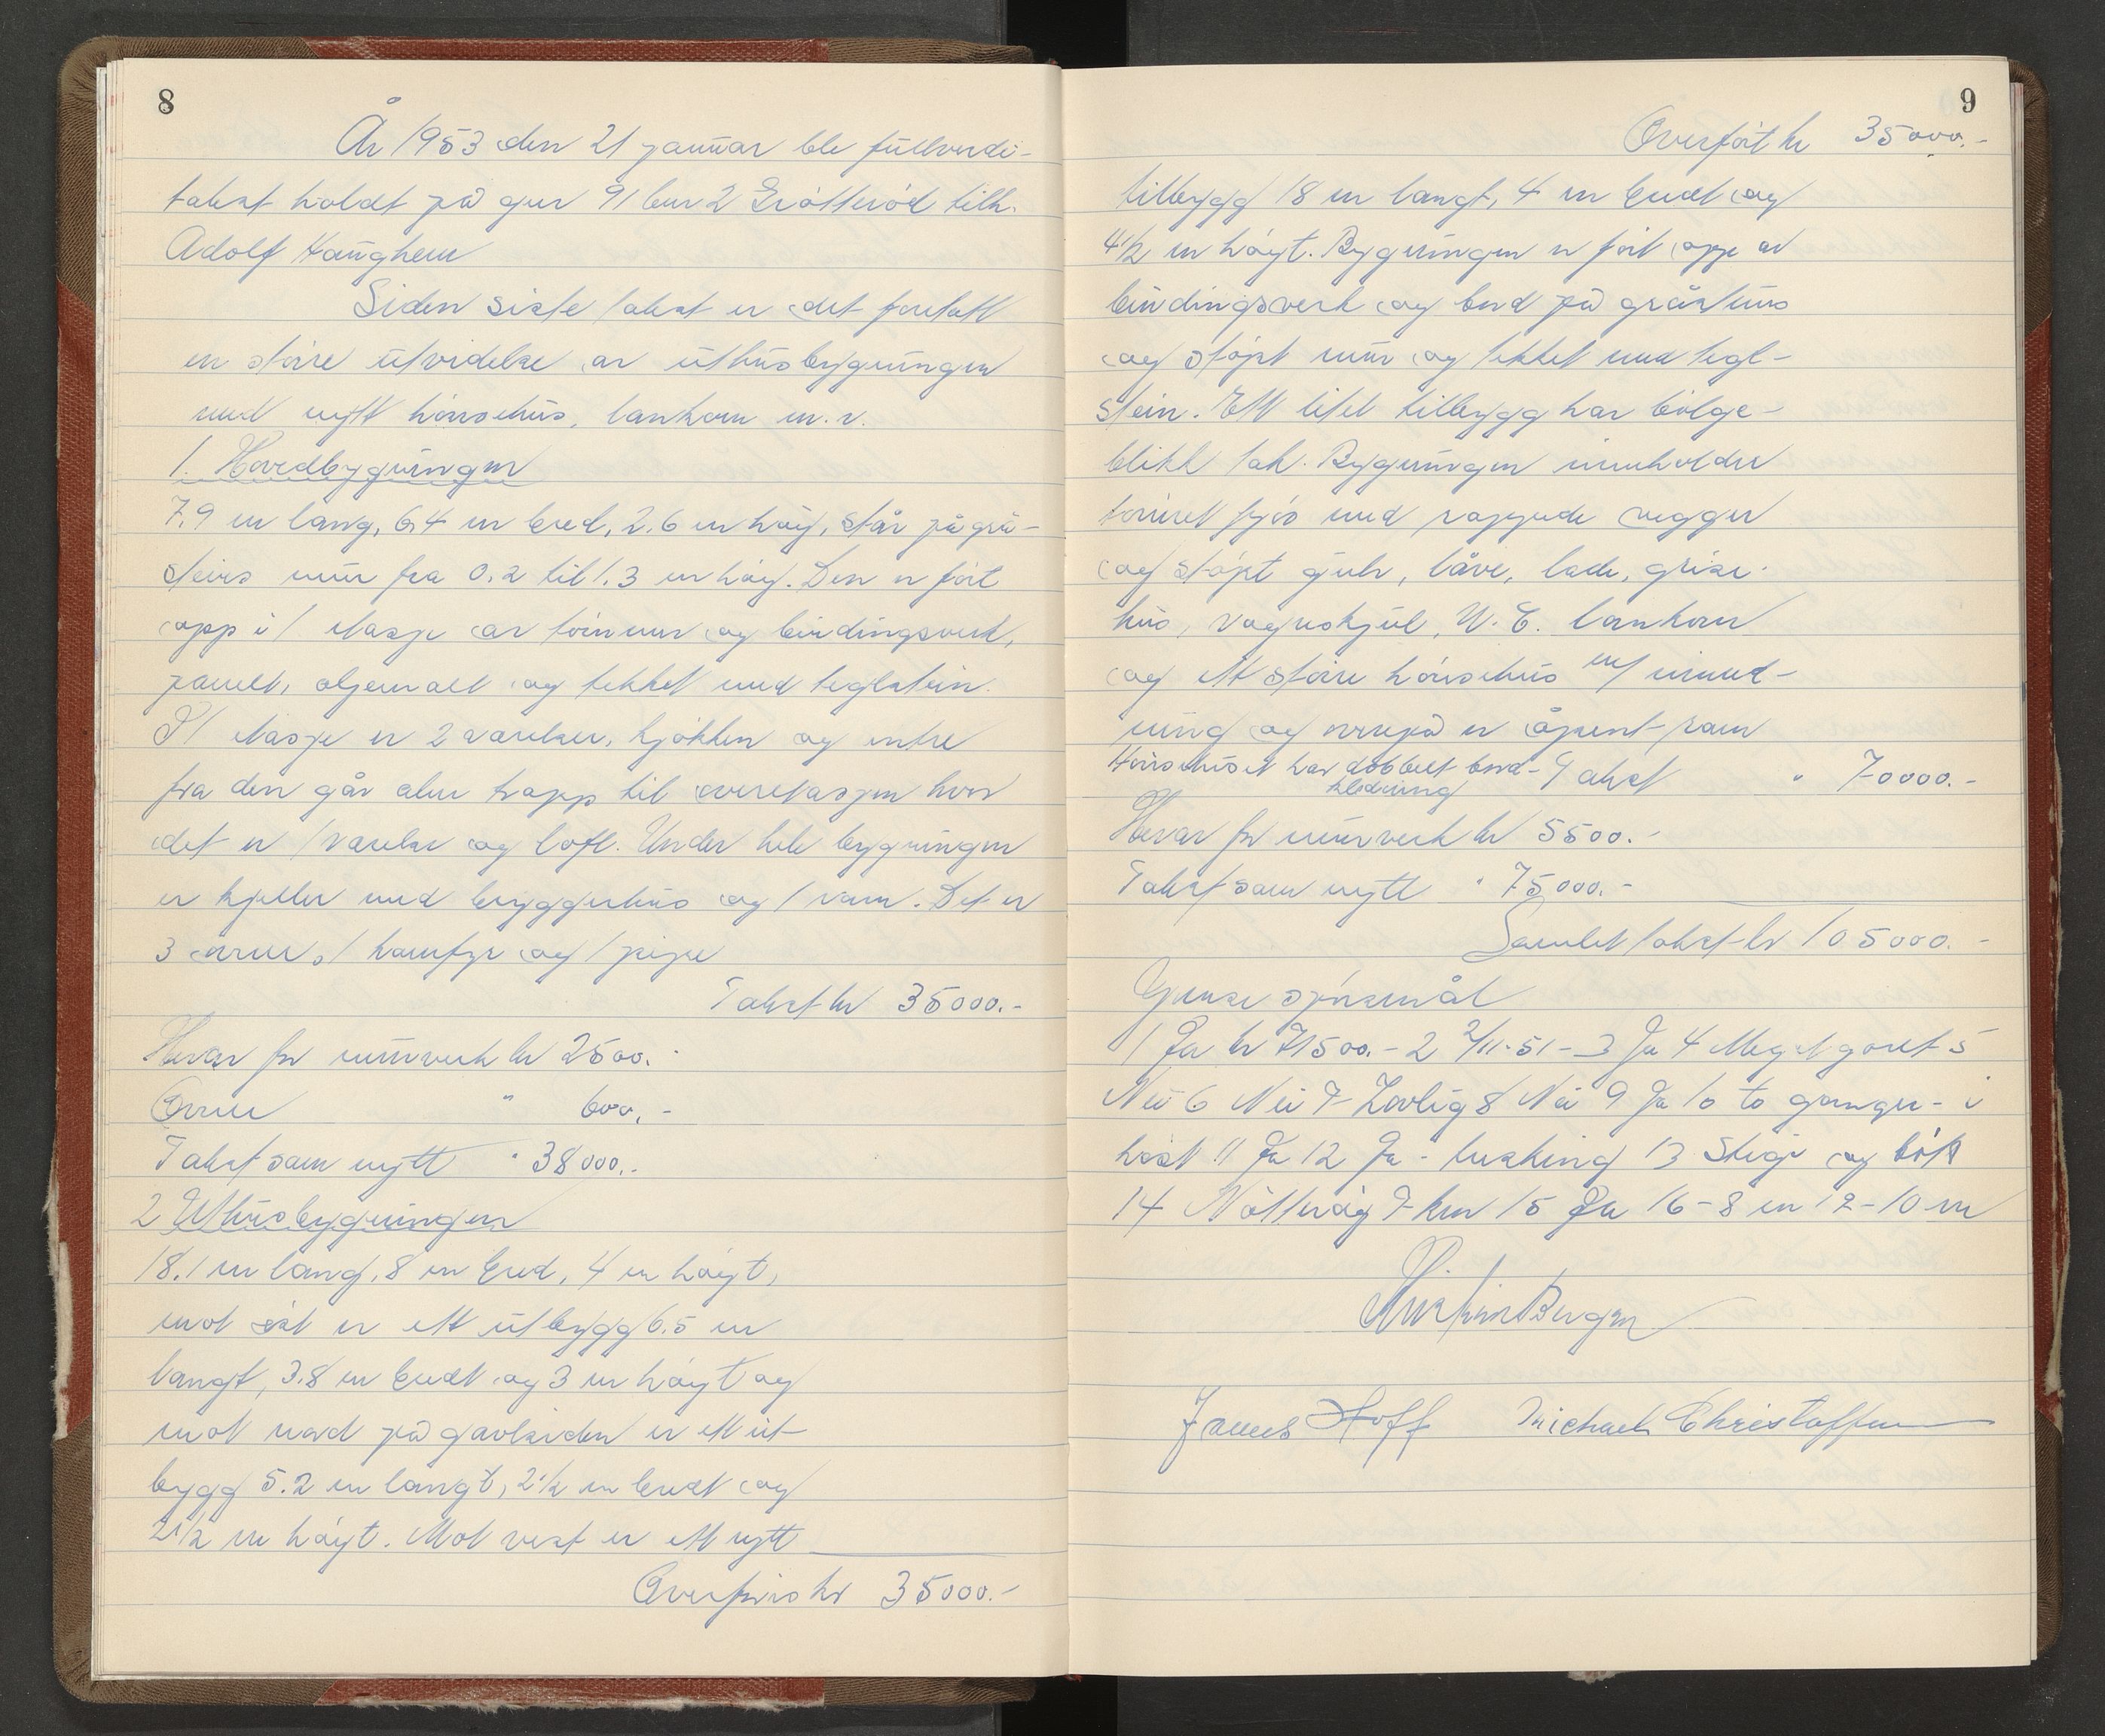 8
År 1953 den 21 januar ble fullverdi-
takst holdt på gnr 91 bnr 2 Gråtterød tilh.
Adolf Haughem
Siden siste takst er det foretatt
en større utvidelse av uthusbygningen
med nytt hønsehus, lankorn m.v.
1. Hovedbygningen
7.9 m lang, 6,4 m bred, 2.6 m høy, står på grå-
steins mur fra 0.2 til 1.3 m høy. Den er ført
opp i 1 etasje av tømmer og bindingsverk,
panelt, oljemalt og tekket med teglstein.
I 1 etasje er 2 værelser, kjøkken og entre
fra den går åben trapp til overetasjen hvor
det er 1 værelse og loft. Under hele bygningen
er kjeller med bryggerhus og 1 rom. Det er
3 ovner, 1 komfyr og 1 pipe
Takst kr 35000.-
Herav for murverk kr 2500.-
Ovner " 600.-
Takst som nytt " 38000.-
2 Uthusbygningen
18.1 m lang, 8 m bred, 4 m høyt,
mot øst er ett utbygg 6.5 m
langt, 3.8 m bredt og 3 m høyt og
mot nord på gavlsiden er ett ut-
bygg 5.2 m langt, 2 1/2 m bredt og
2 1/2 m høyt. Mot vest er ett nytt
Overføres kr 35000.-
9
Overført kr 35000.-
tilbygg 18 m langt, 4 m bredt og
4 1/2 m høyt. Bygningen er ført opp av
bindingsverk og bord på gråsteins
og støpt mur og tekket med tegl-
stein. Ett litet tilbygg har bølge-
blikk tak. Bygningen inneholder
tømret fjøs med rappede vegger
og støpt gulv, låve, lade, grise-
hus, vognskjul, W.C. lankorn
og ett større hønsehus m/ innred-
ning og ovenpå er åpent rom
Hønsehuset har dobbelt bord-
kledning
Takst " 70000.-
Herav for murverk kr 5500.-
Takst som nytt " 75000.-
Samlet takst kr 105000.-
Gense spørsmål
1 Ja kr 71500.- 2 2/11-51 - 3 Ja 4 Meget godt 5
Nei 6 Nei 7 Lovlig 8 Nei 9 Ja 10 to ganger - i
høst 11 Ja 12 Ja - tresking 13 Stige og bøtt
14 Nøtterøy 7 km 15 Ja 16 - 8 m 12 - 10 m
Bergan
James Hoff Michael Christoffersen